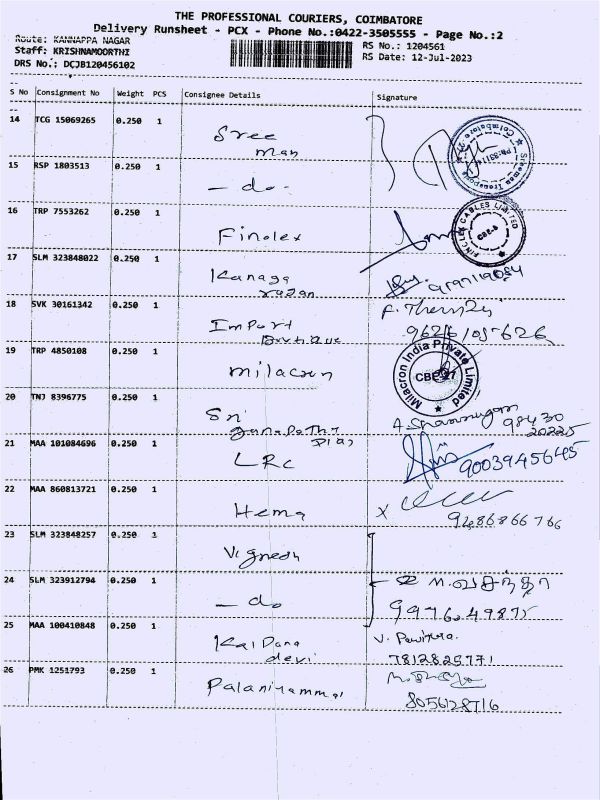 THE PROFESSIONAL COURIERS, COIMBATORE
Delivery Runsheet - PCX - Phone No.:0422-3505555 - Page No.:2
Route: KANNAPPA NAGAR
Staff: KRISHNAMOORTHI
DRS No.: DCJB120456102
RS No.: 1204561
RS Date: 12-Jul-2023
S No Consignment No Weight PCS Consignee Details Signature
14 TCG 15069265 0.250 1 Sree
man
15 RSP 1803513 0.250 1 - do -
16 TRP 7553262 0.250 1 Finolex
FINOLEX CABLES LIMITED
CBE-6
17 SLM 323848022 0.250 1 Kanaga
razan
18 SVK 30161342 0.250 1 Import
Boutique
9626105626
19 TRP 4850108 0.250 1 milacron
Milacron India Private Limited
CBE-27
20 TNJ 8396775 0.250 1 Sri
ganapathy
A. Shanmugam 98430
20225
21 MAA 101084696 0.250 1 LRC
9003945645
22 MAA 860813721 0.250 1 Hema
x
9486866766
23 SLM 323848257 0.250 1 Vignesh
24 SLM 323912794 0.250 1 - do
ம.வசந்தா
9976049875
25 MAA 100410848 0.250 1 Kalpana
devi
V. Pavithra.
7812825771
26 PMK 1251793 0.250 1 Palaniyammal
8056128716